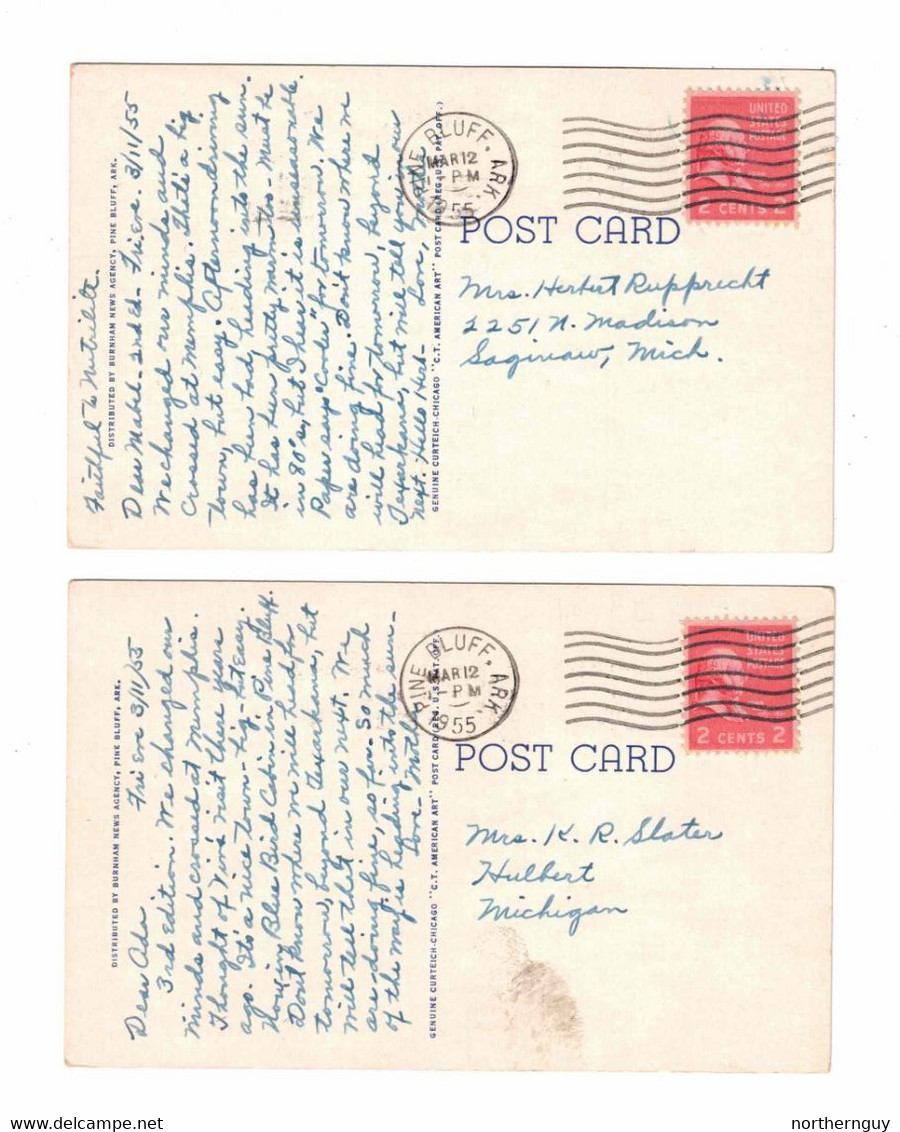 Faithful to Nutrilite.
DISTRIBUTED BY BURNHAM NEWS AGENCY, PINE BLUFF, ARK.
Dear Mabel - 2nd Ed - Fri Eve. 3/11/55
We changed our minds and
crossed at Memphis. That's a big
town, but easy. Afternoon driving
has been bad, heading into the sun.
It has been pretty warm too - Must be
in 80's, but I hear it is unseasonable
Paper says "Cooler" for tomorrow. We
are doing fine. Don't know where we
will head for tomorrow, beyond
Texarkana, but will tell you in our
next. Hello Herb - Love, Mother
GENUINE CURTEICH-CHICAGO "C.T. AMERICAN ART" POST CARD (REG. U.S. PAT. OFF.)
PINE BLUFF, ARK.
MAR 12
1 PM
1955
UNITED
STATES
POSTAGE
2 CENTS 2
POST CARD
Mrs. Herbert Rupprecht
2251 N. Madison
Saginaw, Mich.
DISTRIBUTED BY BURNHAM NEWS AGENCY, PINE BLUFF, ARK.
Dear Ada Fri Eve 3/11/55
3rd Edition. We changed our
minds and crossed at Memphis.
Thought of Viva's visit there years
ago. It's a nice town - big - but easy.
Now in Blue Bird Cabin in Pine Bluff.
Don't know where we will head for
tomorrow, beyond Texarkana, but
will tell that in our next. We
are doing fine, so far - So much
of the way is heading into the sun -
Love - Mother
GENUINE CURTEICH-CHICAGO "C.T. AMERICAN ART" POST CARD (REG. U.S. PAT. OFF.)
PINE BLUFF, ARK.
MAR 12
1 PM
1955
UNITED
STATES
POSTAGE
2 CENTS 2
POST CARD
Mrs. K. R. Slater
Hulbert
Michigan
northernguy